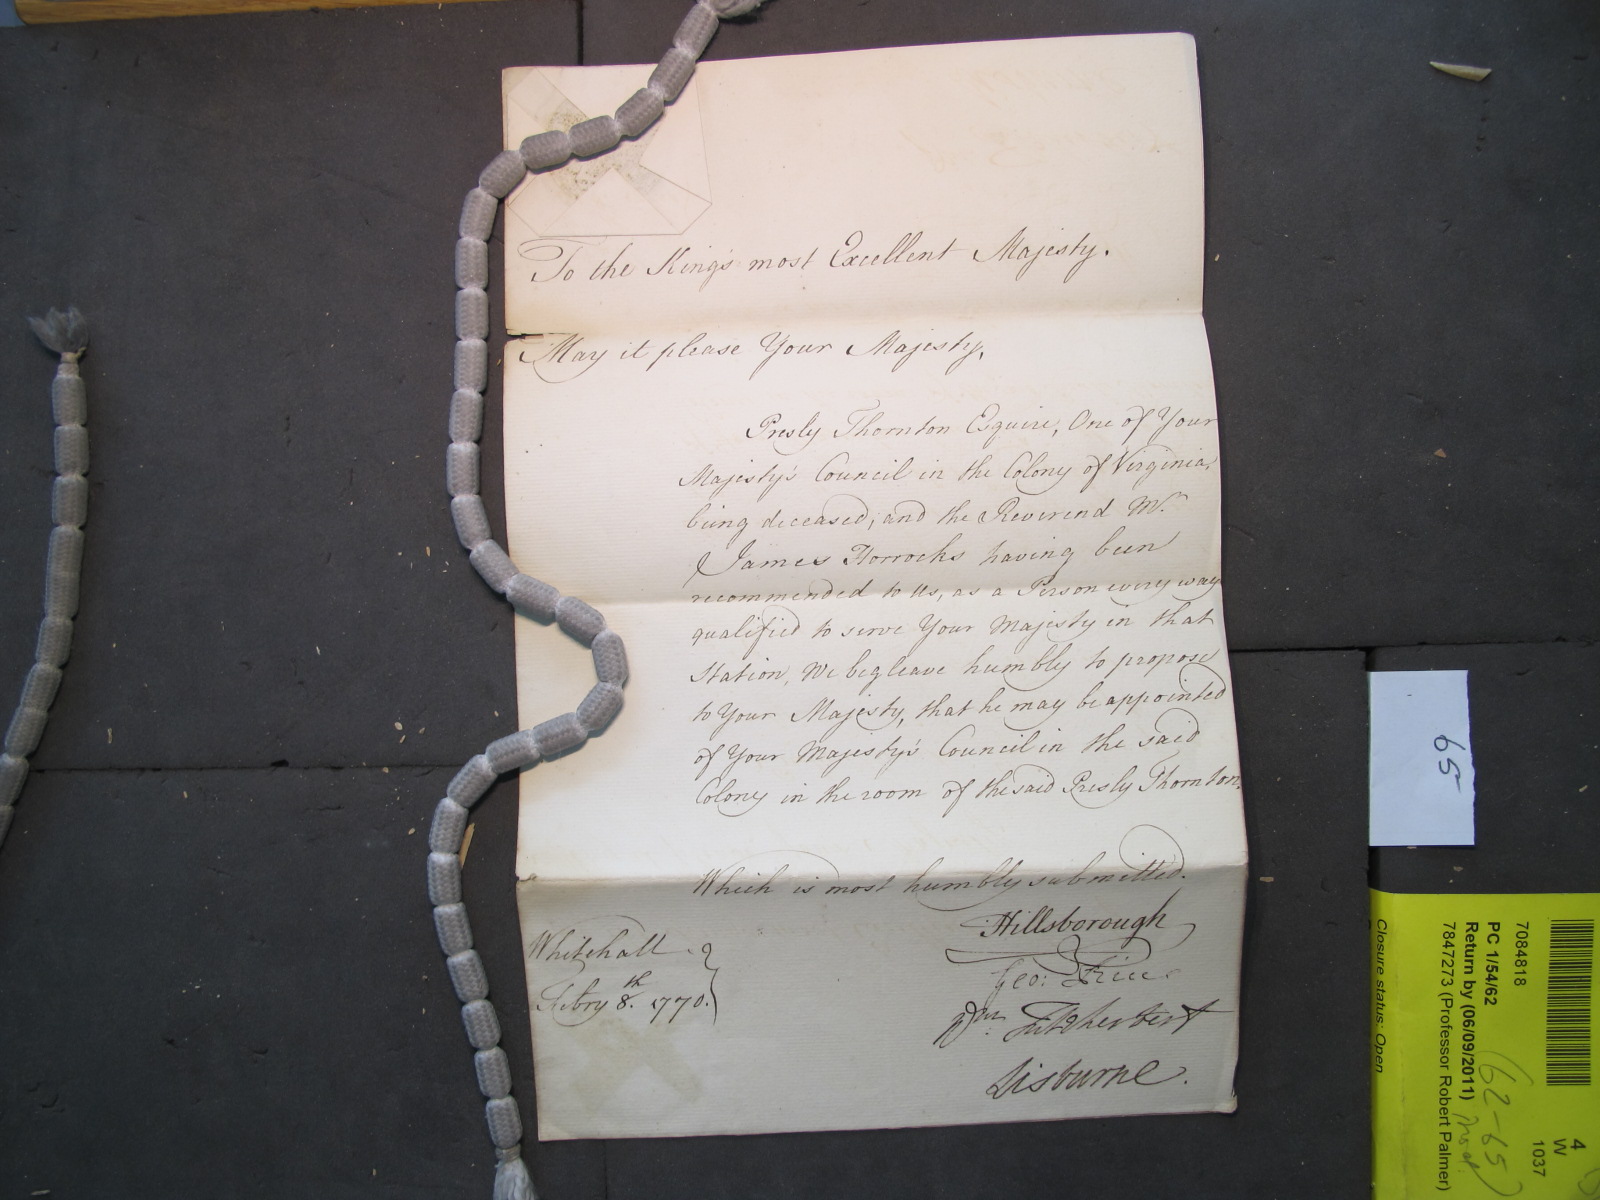 To the King's most Excellent Majesty.
May it please Your Majesty,
Presly Thornton Esquire, One of Your
Majesty's Council in the Colony of Virginia,
being deceased, and the Reverend Mr.
James Horrocks having been
recommended to us, as a Person every way
qualified to serve Your Majesty in that
Station, We beg leave humbly to propose
to Your Majesty, that he may be appointed
of Your Majesty's Council in the said
Colony in the room of the said Presly Thornton.
Which is most humbly submitted.
Hillsborough
Geo: Rice
Wm. Fitzherbert
Lisburne.
Whitehall
Febry 8th. 1770.
65
7084818
PC 1/54/62
Return by (06/09/2011)
7847273 (Professor Robert Palmer)
Closure status: Open
4
W
1037
(62-65)